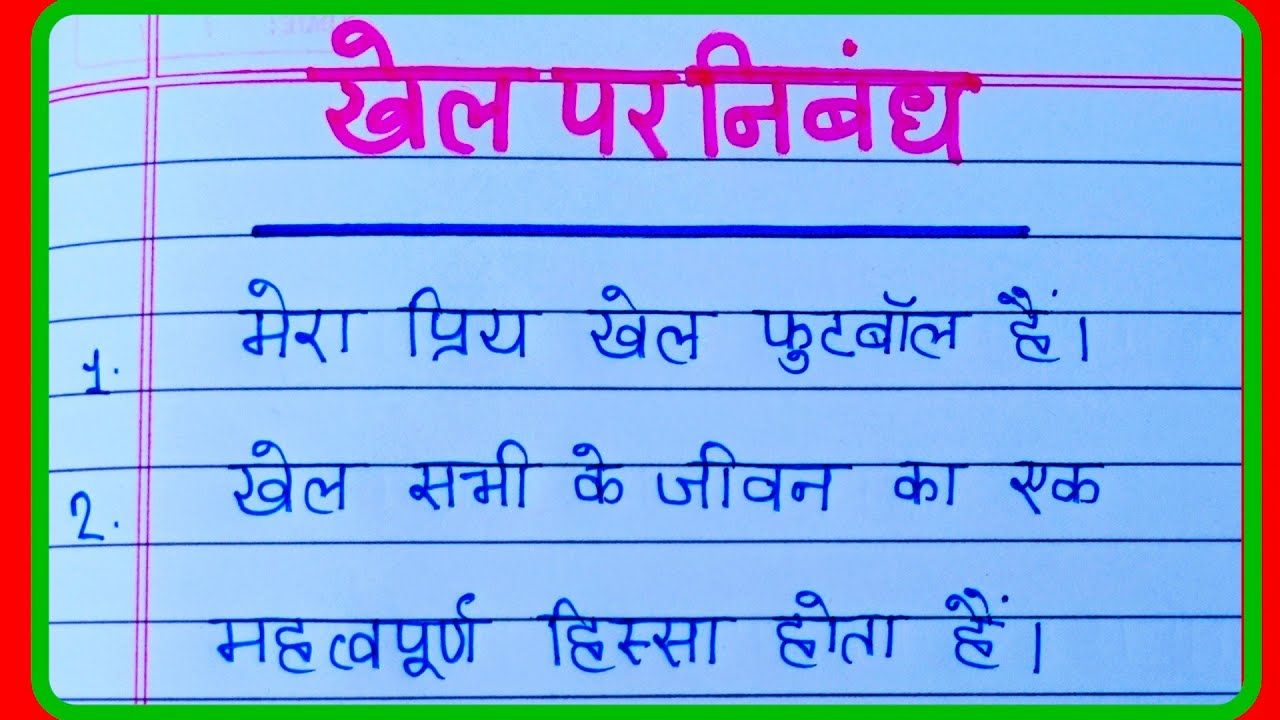 खेल पर निबंध
1. मेरा प्रिय खेल फुटबॉल हैं।
2. खेल सभी के जीवन का एक
महत्वपूर्ण हिस्सा होता हैं।